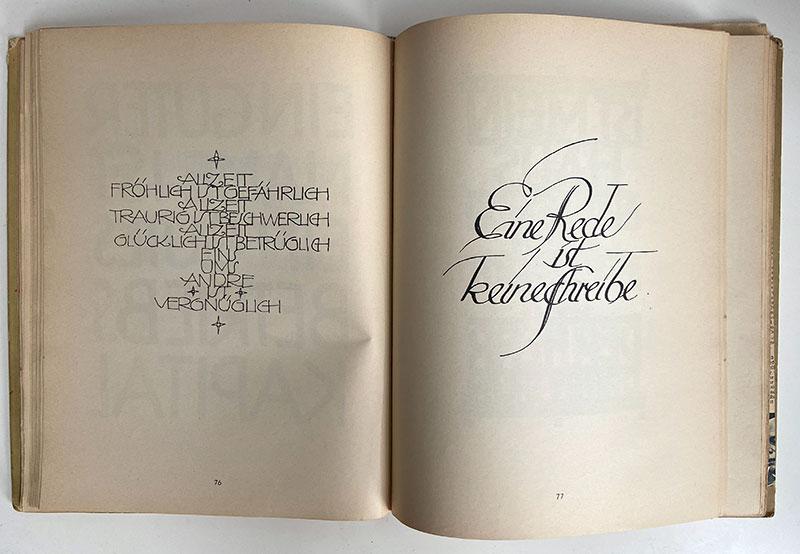 ALLZEIT
FRÖHLICH IST GEFÄHRLICH
ALLZEIT
TRAURIG IST BESCHWERLICH
ALLZEIT
GLÜCKLICH IST BETRÜGLICH
EINS
UMS
ANDRE
IST
VERGNÜGLICH
76
Eine Rede
ist
keine Schreibe.
77